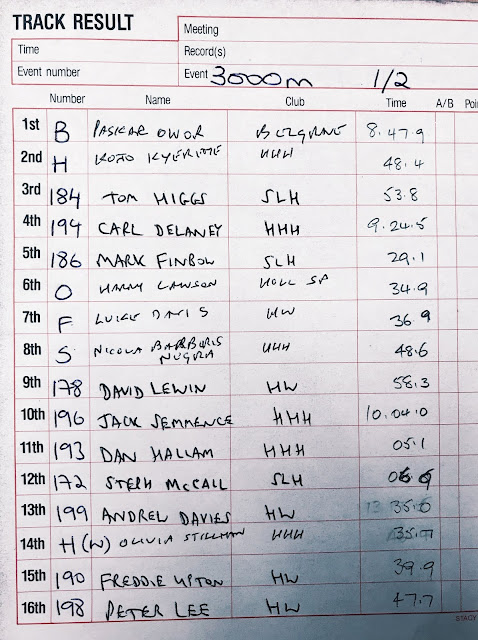 TRACK RESULT
Meeting
Time
Record(s)
Event number
Event 3000m 1/2
Number Name Club Time A/B Poi
1st B PASKAR OWOR BELGRAVE 8.47.9
2nd H KOJO KYEREME HHH 48.4
3rd 184 TOM HIGGS SLH 53.8
4th 194 CARL DELANEY HHH 9.24.5
5th 186 MARK FINBOW SLH 29.1
6th O HARRY LAWSON HOLL SP 34.9
7th F LUIGE DAVIS HW 36.9
8th S NICOLA BARBORIS NUGRA HHH 48.6
9th 178 DAVID LEWIN HW 58.3
10th 196 JACK SEMMENCE HHH 10.04.0
11th 193 DAN HALLAM HHH 05.1
12th 172 STEPH McCALL SLH
13th 199 ANDREW DAVIES HW 35.0
14th H (W) OLIVIA STILLMAN HHH 35.7
15th 190 FREDDIE UPTON HW 39.9
16th 198 PETER LEE HW 47.7
STACY